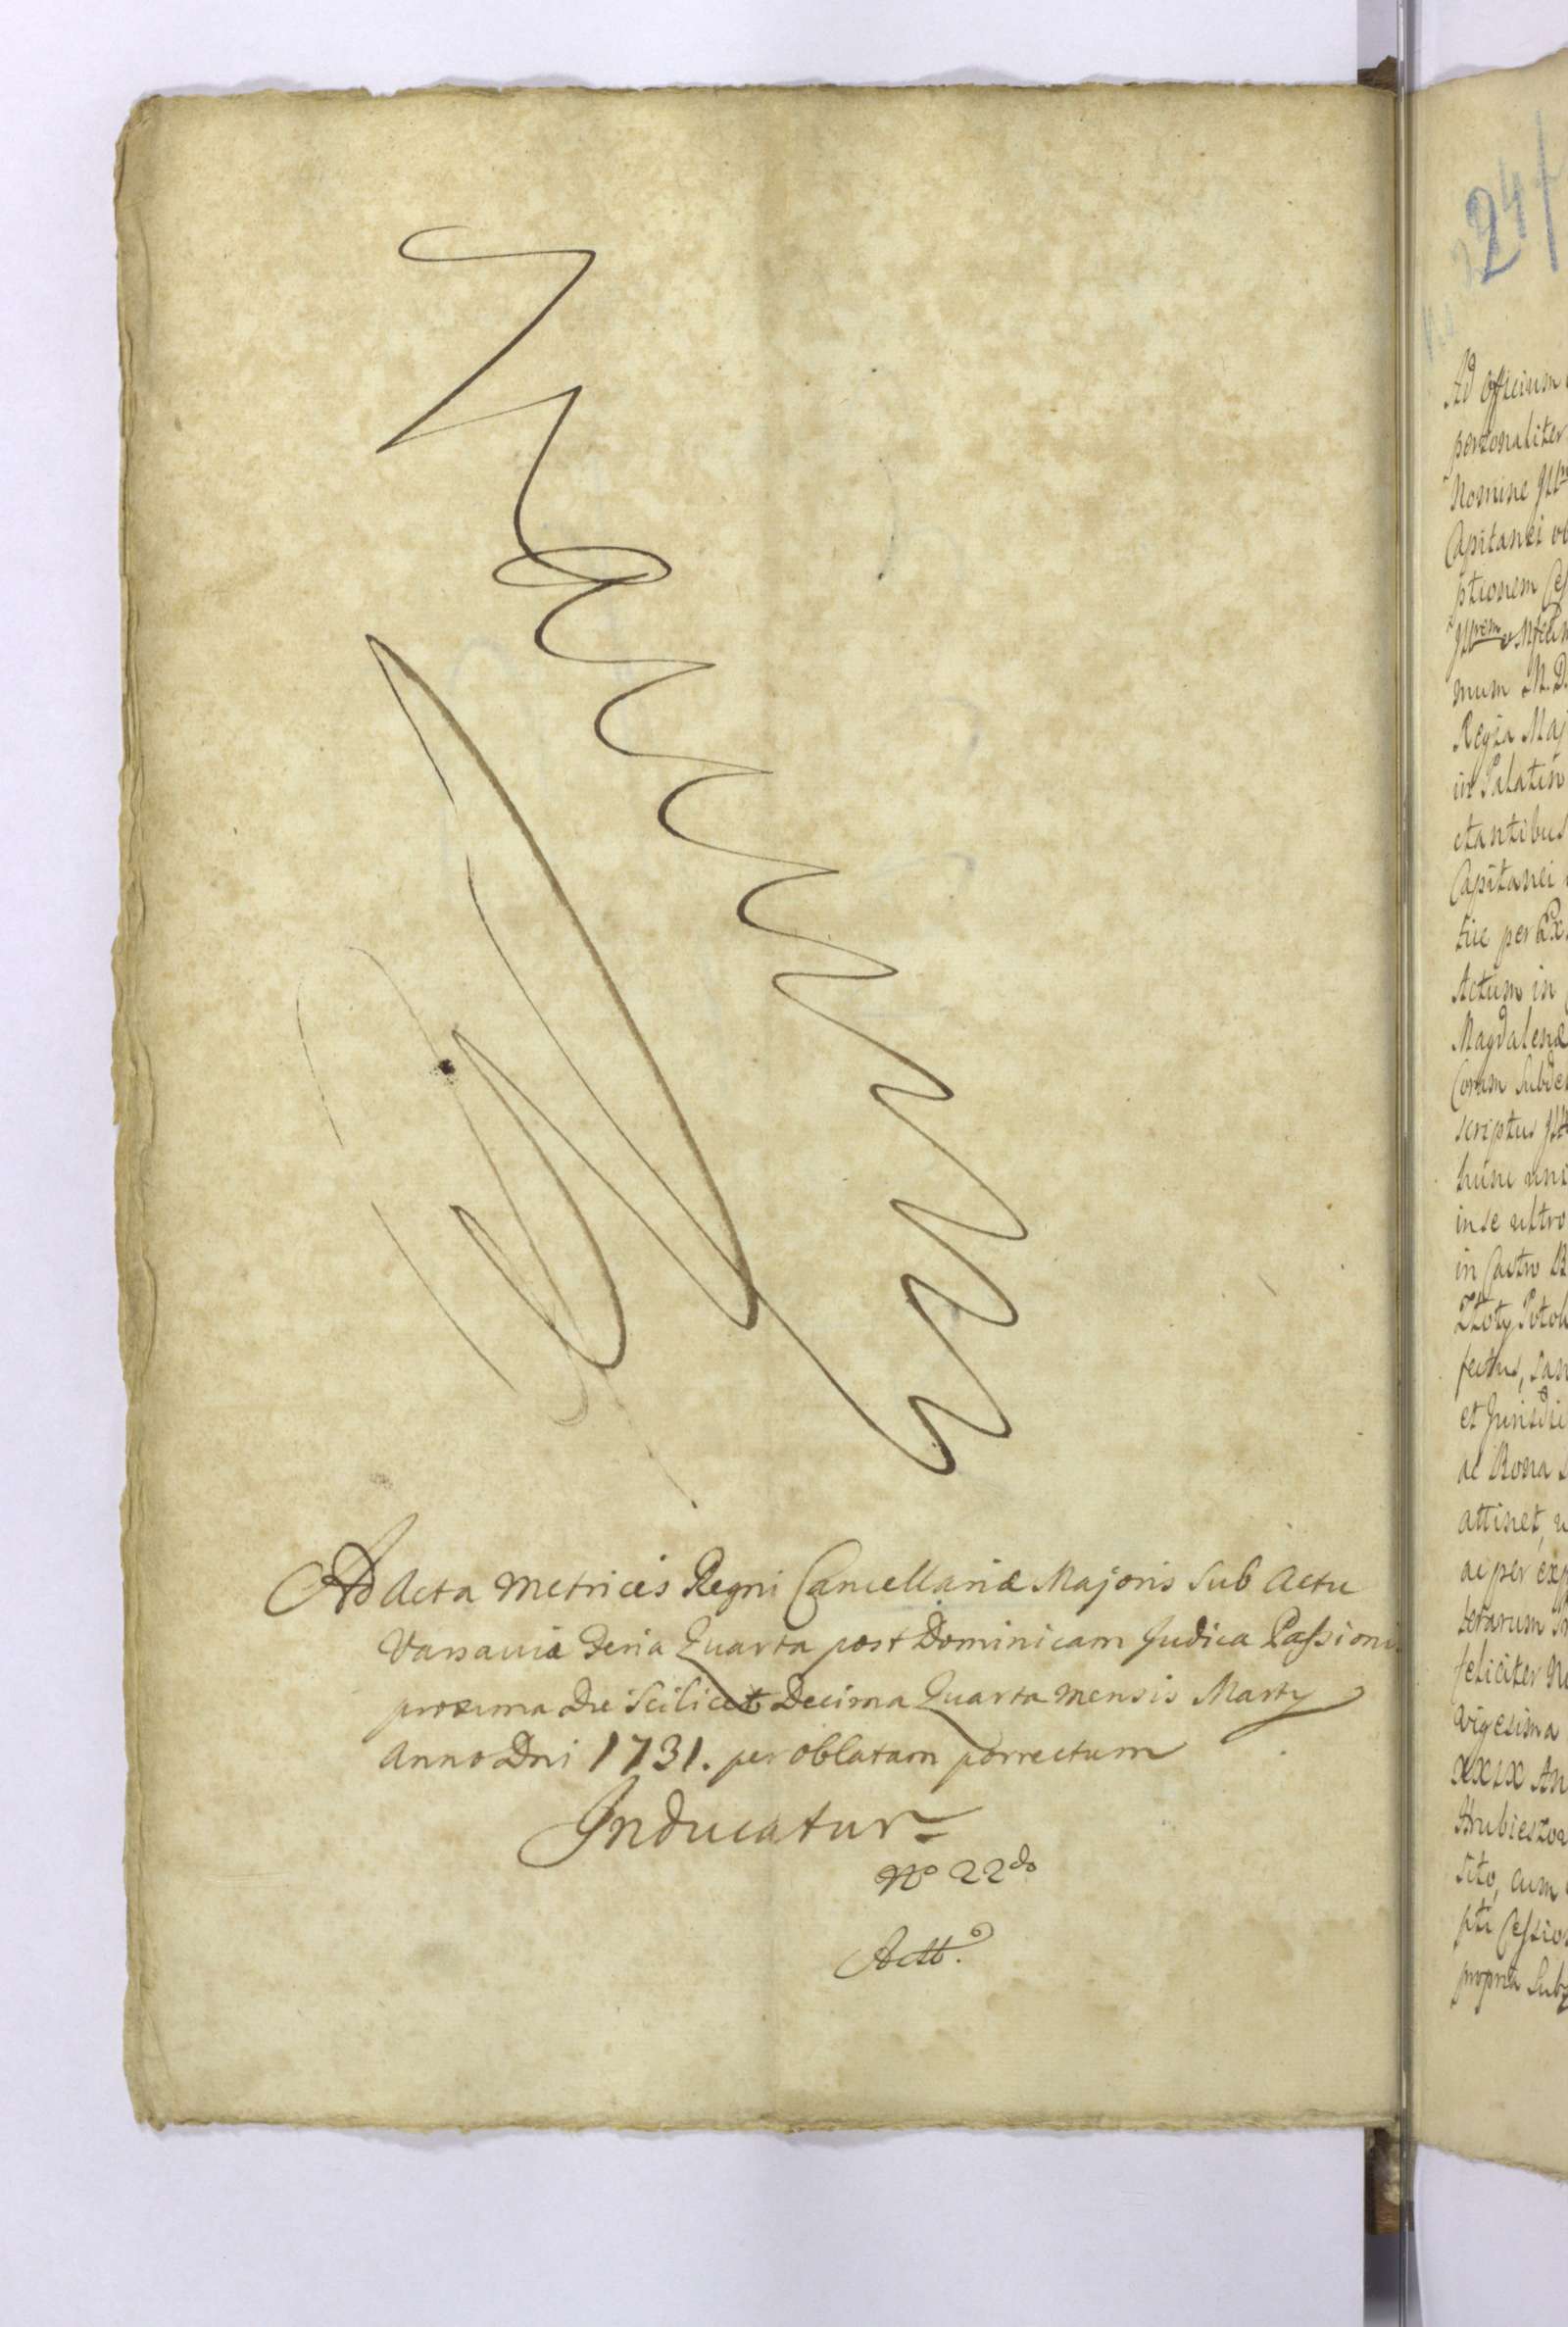 Ad Acta Metrices Regni Cancellariæ Majoris Sub Actu
Varsaviæ Feria Quarta post Dominicam Judica Passionis
proxima Die Scilicet Decima Quarta mensis Martÿ
Anno Dni 1731. per oblatam porrectum
Inducatur
No 22do
Actt.
241
Ad Officium
personaliter
Nomine
Capitanei
ptionem
mum M.D.
Regia Maj
in Palatin
ctantibus
Capitanei
tue per Ex
Actum in
Magdalenæ
Coram Subde
scriptus
hunc
in se ultro
in Castro
Złoty Potok
fectus, san
et Jurisdi
ac Bona
attinet,
ac per exp
terarum
feliciter
vigesima
XXIX An
Hrubieszow
sito, cum
pti Cessio
propria Sub